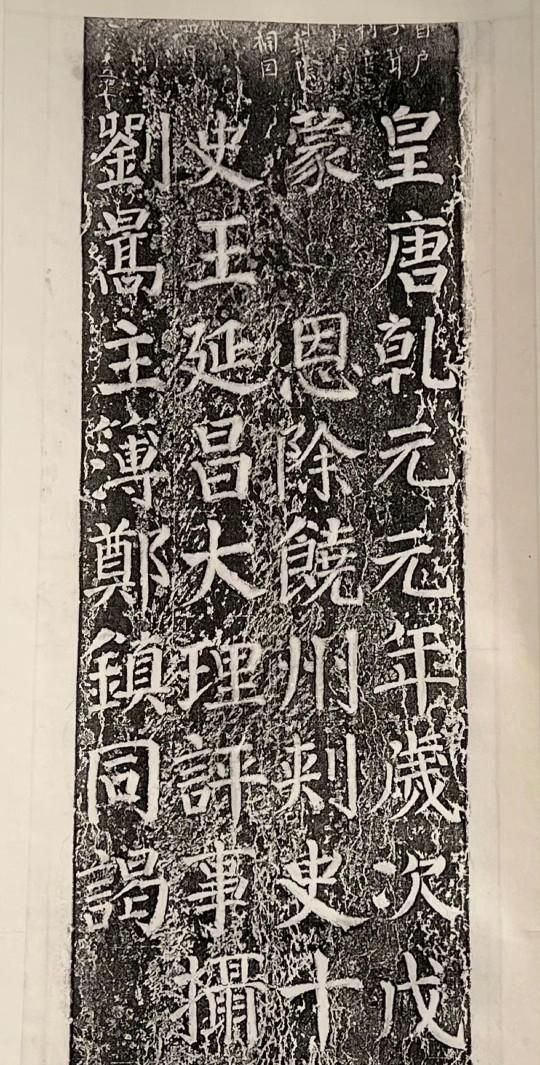 皇唐乾元元年歲次戊
蒙恩除饒州刺史十
史王延昌大理評事攝
劉暠主簿鄭鎮同謁